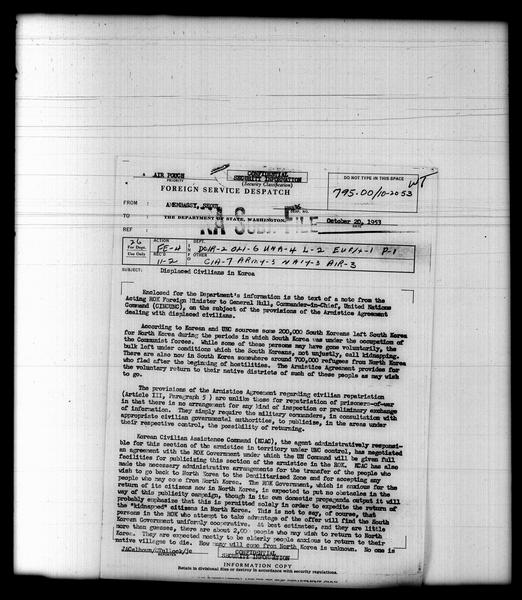 AIR POUCH
PRIORITY
CONFIDENTIAL
SECURITY INFORMATION
(Security Classification)
DO NOT TYPE IN THIS SPACE
795.00/10-2053
FOREIGN SERVICE DESPATCH
FROM : AMEMBASSY, SEOUL
DESP. NO.
TO : THE DEPARTMENT OF STATE, WASHINGTON.
October 20, 1953
DATE
REF :
26
For Dept.
Use Only
ACTION
FE-4
DEPT.
DCIR-2 OLI-6 UNA-4 L-2 EUR-1 P-1
REC'D
11-2
OTHER
CIA-7 ARMY-3 NAVY-3 AIR-3
SUBJECT: Displaced Civilians in Korea
Enclosed for the Department's information is the text of a note from the
Acting ROK Foreign Minister to General Hull, Commander-in-Chief, United Nations
Command (CINCUNC), on the subject of the provisions of the Armistice Agreement
dealing with displaced civilians.
According to Korean and UNC sources some 200,000 South Koreans left South Korea
for North Korea during the periods in which South Korea was under the occupation of
the Communist forces. While some of these persons may have gone voluntarily, the
bulk left under conditions which the South Koreans, not unjustly, call kidnapping.
There are also now in South Korea somewhere around 700,000 refugees from North Korea
who fled after the beginning of hostilities. The Armistice Agreement provides for
the voluntary return to their native districts of such of these people as may wish
to go.
The provisions of the Armistice Agreement regarding civilian repatriation
(Article III, Paragraph 5) are unlike those for repatriation of prisoners-of-war
in that there is no arrangement for any kind of inspection or preliminary exchange
of information. They simply require the military commanders, in consultation with
appropriate civilian governmental authorities, to publicize, in the areas under
their respective control, the possibility of returning.
Korean Civilian Assistance Command (KCAC), the agent administratively responsi-
ble for this section of the armistice in territory under UNC control, has negotiated
an agreement with the ROK Government under which the UN Command will be given full
facilities for publicizing this section of the armistice in the ROK. KCAC has also
made the necessary administrative arrangements for the transfer of the people who
wish to go back to North Korea to the Demilitarized Zone and for accepting any
people who may come from North Korea. The ROK Government, which is anxious for the
return of its citizens now in North Korea, is expected to put no obstacles in the
way of this publicity campaign, though in its own domestic propaganda output it will
probably emphasize that this is permitted solely in order to expedite the return of
the "kidnapped" citizens in North Korea. This is not to say, of course, that
persons in the ROK who attempt to take advantage of the offer will find the South
Korean Government uniformly cooperative. At best estimates, and they are little
more than guesses, there are about 2,000 people who may wish to return to North
Korea. They are expected mostly to be elderly people anxious to return to their
native villages to die. How many will come from North Korea is unknown. No one is
JACalhoun/
REPORTER
CONFIDENTIAL
SECURITY INFORMATION
INFORMATION COPY
Retain in divisional files or destroy in accordance with security regulations.